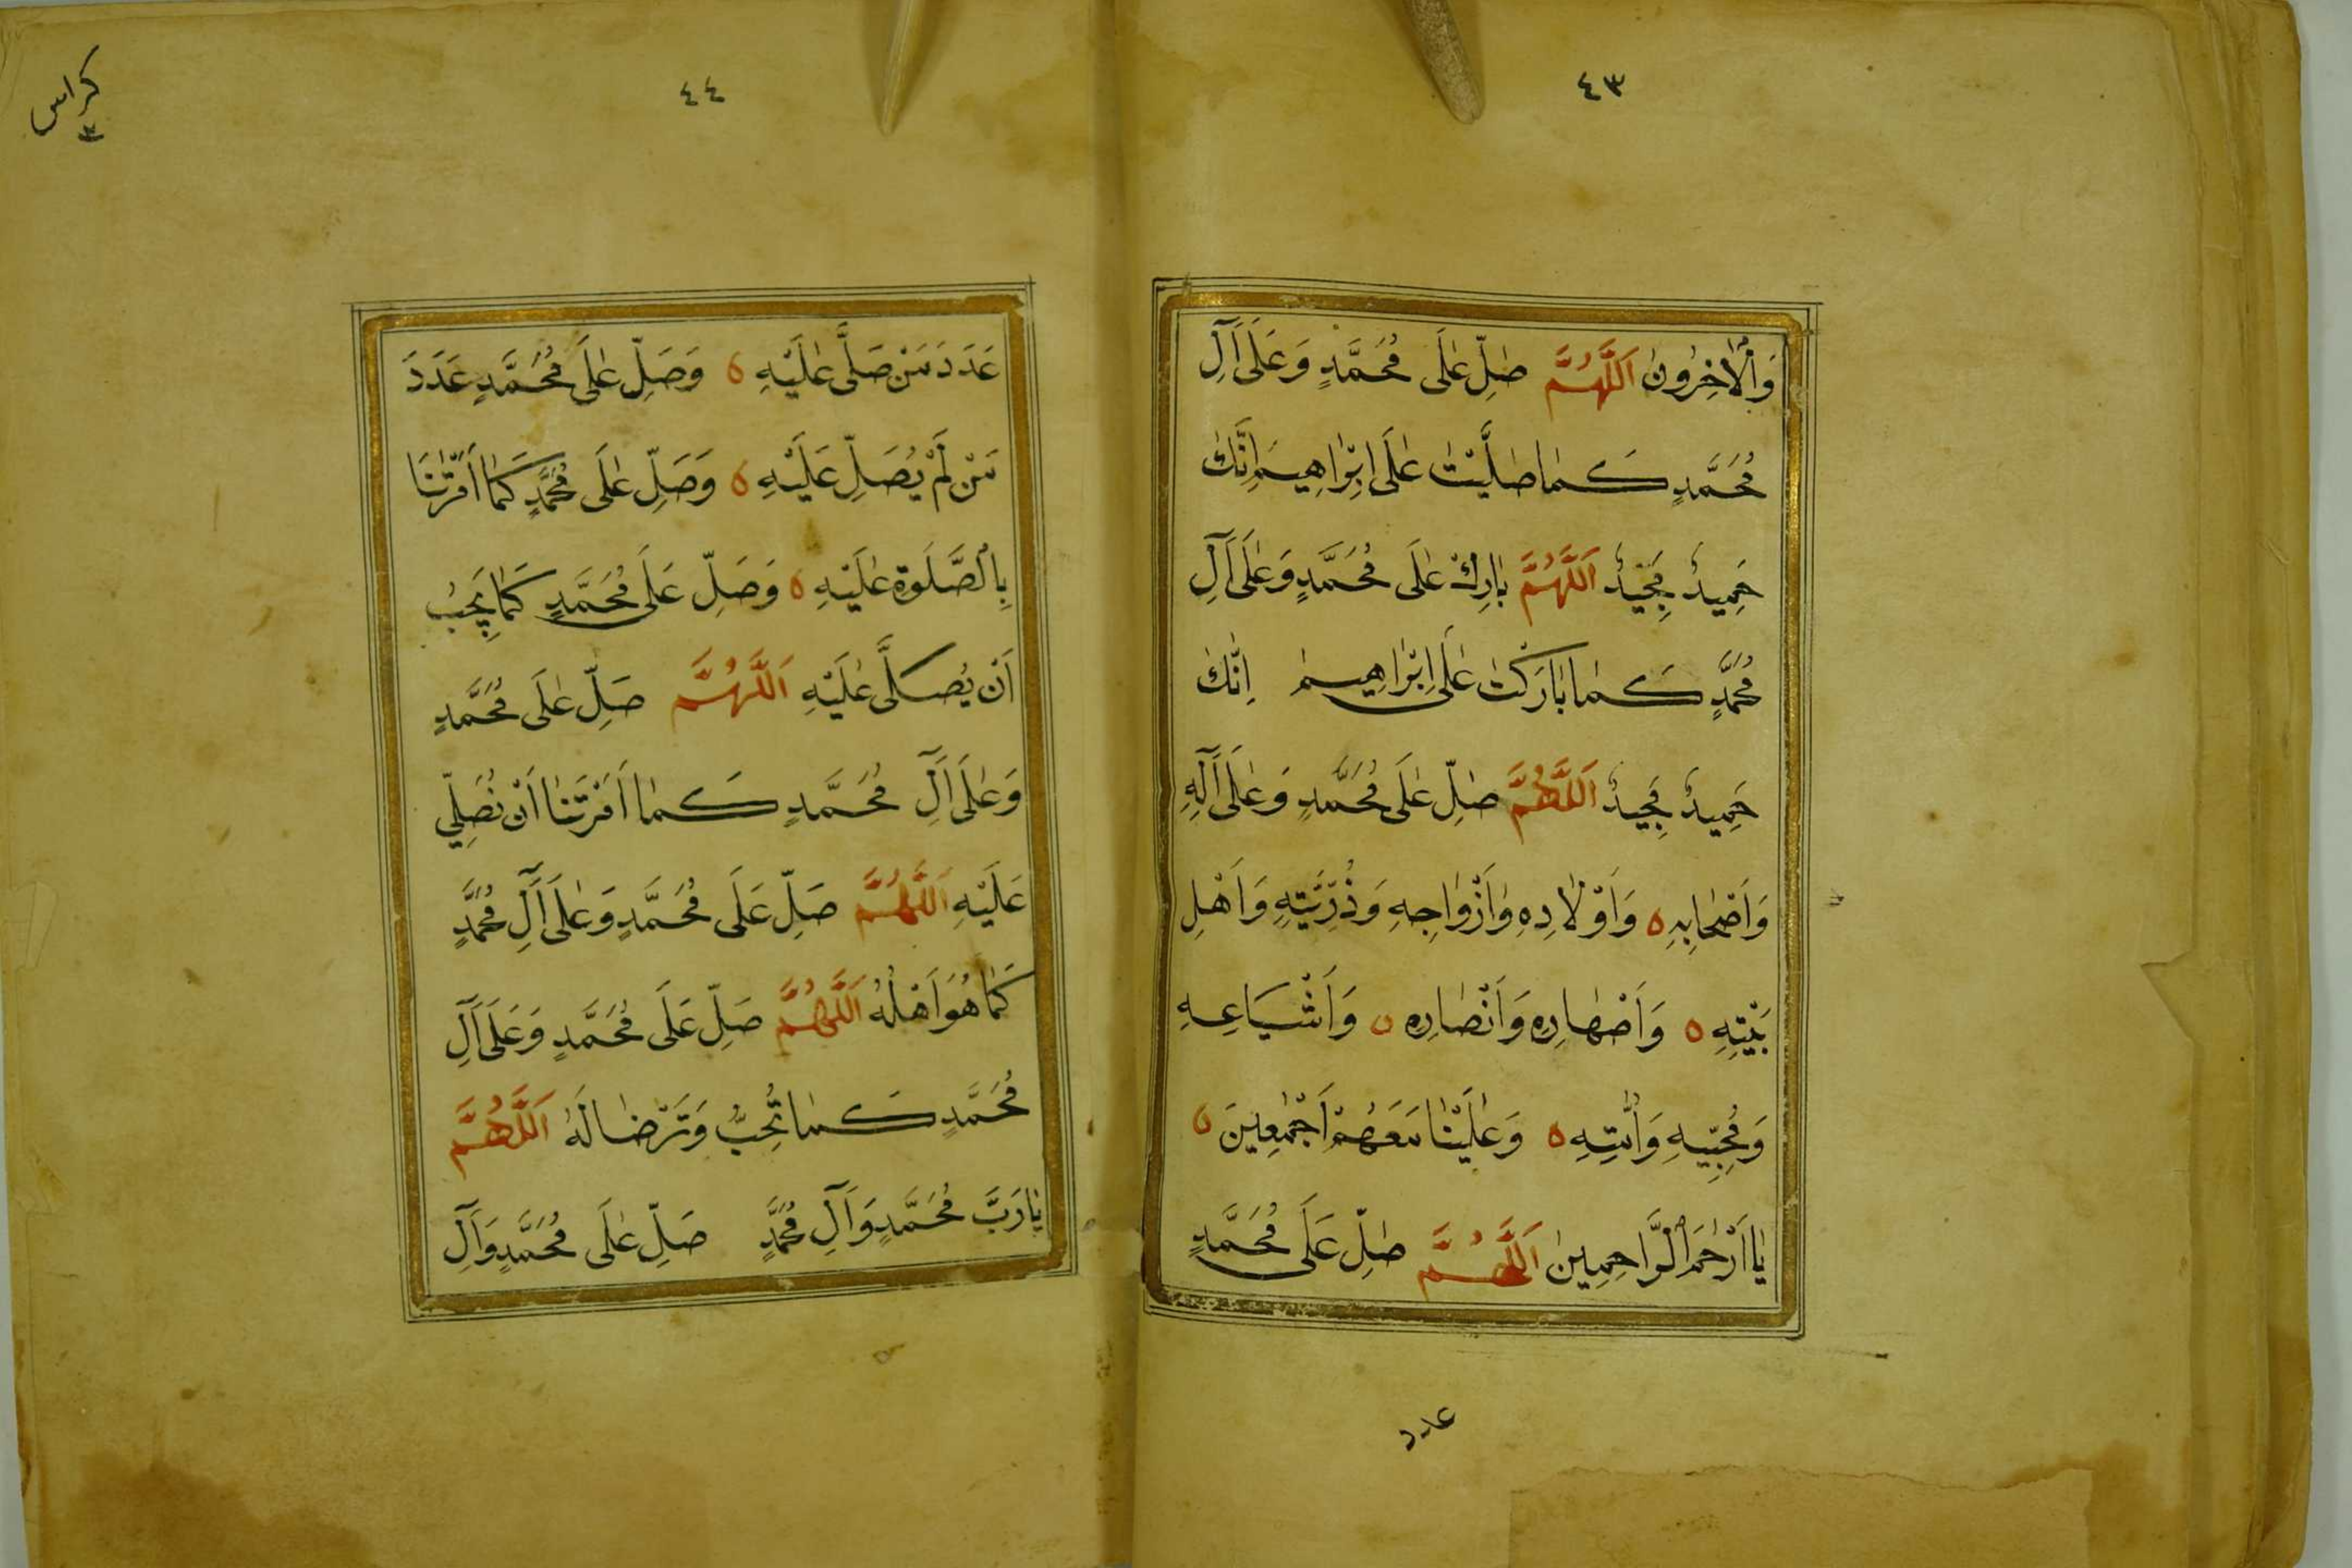 ٤٣
وَالْاٰخِرُونَ اَللّٰهُمَّ صَلِّ عَلَى مُحَمَّدٍ وَعَلَى اٰلِ
مُحَمَّدٍ كَمَا صَلَّيْتَ عَلَى اِبْرَاهِيمَ اِنَّكَ
حَمِيدٌ مَجِيدٌ اَللّٰهُمَّ بَارِكْ عَلَى مُحَمَّدٍ وَعَلَى اٰلِ
مُحَمَّدٍ كَمَا بَارَكْتَ عَلَى اِبْرَاهِيمَ اِنَّكَ
حَمِيدٌ مَجِيدٌ اَللّٰهُمَّ صَلِّ عَلَى مُحَمَّدٍ وَعَلَى اٰلِهِ
وَاَصْحَابِهِ ٥ وَاَوْلَادِهِ وَاَزْوَاجِهِ وَذُرِّيَّتِهِ وَاَهْلِ
بَيْتِهِ ٥ وَاَصْهَارِهِ وَاَنْصَارِهِ ٥ وَاَشْيَاعِهِ
وَمُحِبِّيهِ وَاُمَّتِهِ ٥ وَعَلَيْنَا مَعَهُمْ اَجْمَعِينَ ٥
يَا اَرْحَمَ الرَّاحِمِينَ اَللّٰهُمَّ صَلِّ عَلَى مُحَمَّدٍ
عدد
٤٤
كراس
٣
عَدَدَ مَنْ صَلَّى عَلَيْهِ ٥ وَصَلِّ عَلَى مُحَمَّدٍ عَدَدَ
مَنْ لَمْ يُصَلِّ عَلَيْهِ ٥ وَصَلِّ عَلَى مُحَمَّدٍ كَمَا اَمَرْتَنَا
بِالصَّلَوةِ عَلَيْهِ ٥ وَصَلِّ عَلَى مُحَمَّدٍ كَمَا يَجِبُ
اَنْ يُصَلَّى عَلَيْهِ اَللّٰهُمَّ صَلِّ عَلَى مُحَمَّدٍ
وَعَلَى اٰلِ مُحَمَّدٍ كَمَا اَمَرْتَنَا اَنْ نُصَلِّيَ
عَلَيْهِ اَللّٰهُمَّ صَلِّ عَلَى مُحَمَّدٍ وَعَلَى اٰلِ مُحَمَّدٍ
كَمَا هُوَ اَهْلُهُ اَللّٰهُمَّ صَلِّ عَلَى مُحَمَّدٍ وَعَلَى اٰلِ
مُحَمَّدٍ كَمَا تُحِبُّ وَتَرْضَا لَهُ اَللّٰهُمَّ
يَا رَبَّ مُحَمَّدٍ وَاٰلِ مُحَمَّدٍ صَلِّ عَلَى مُحَمَّدٍ وَاٰلِ